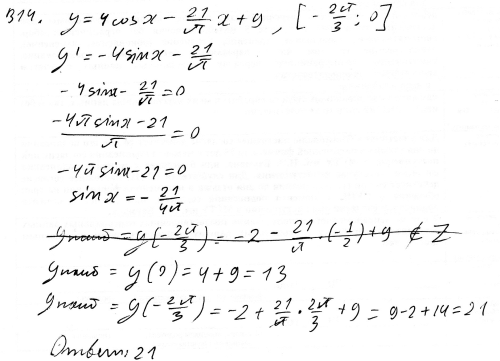 В14. y = 4cosx - 21/π x + 9, [-2π/3; 0]
y' = -4sinx - 21/π
-4sinx - 21/π = 0
(-4πsinx - 21)/π = 0
-4πsinx - 21 = 0
sinx = -21/4π
yнаиб = y(-2π/3) = -2 - 21/π · (-1/2) + 9 ∉ Z
yнаиб = y(0) = 4 + 9 = 13
yнаиб = y(-2π/3) = -2 + 21/π · 2π/3 + 9 = 9 - 2 + 14 = 21
Ответ: 21